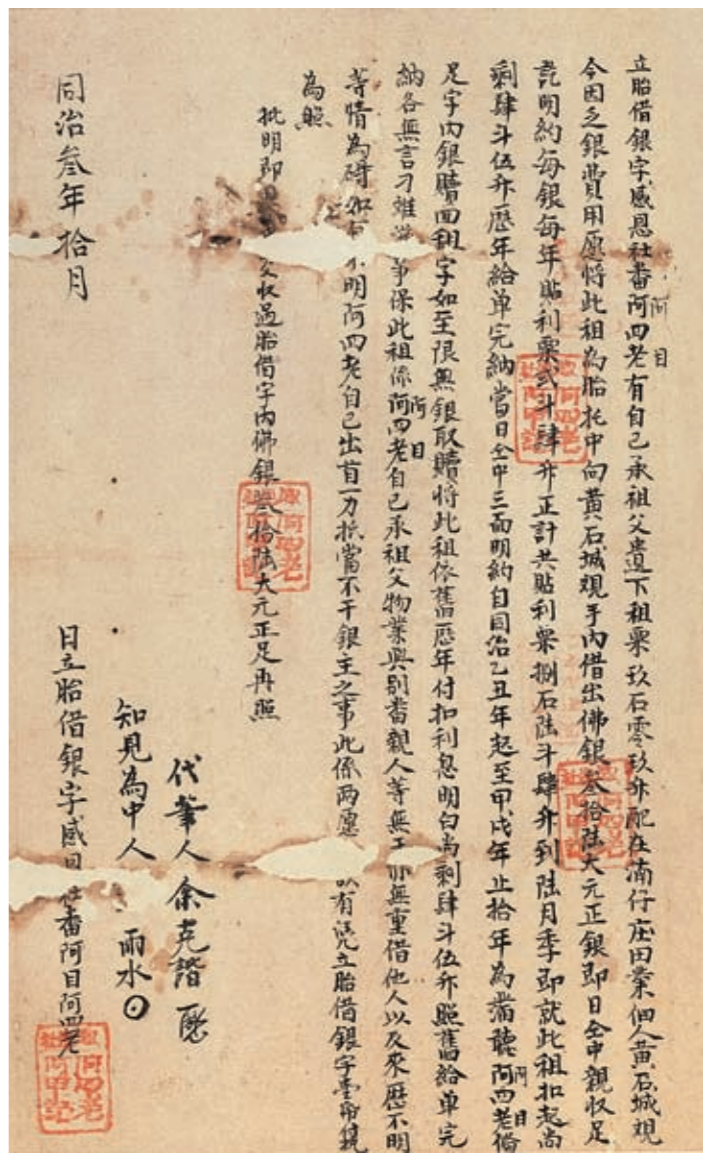 立胎借銀字感恩社番阿目阿四老有自己承祖父遺下租粟玖石零玖升配在湳仔庄田業佃人黃石城觀
今因乏銀費用愿將此租為胎托中向黃石城觀手內借出佛銀叁拾陸大元正銀即日仝中親收足
訖明約每銀每年貼利粟弍斗肆升正計共貼利粟捌石陸斗肆升到陸月季即就此租扣起尚
剩肆斗伍升歷年給单完納當日仝中三面明約自同治乙丑年起至甲戌年止拾年為滿聽阿目阿四老備
足字內銀贖回租字如至限無銀取贖將此租依舊歷年付扣利息明白尚剩肆斗伍升照舊給单完
納各無言刁難滋事保此租係阿目阿四老自己承祖父物業與別番親人等無干亦無重借他人以及來歷不明
等情為碍如有不明阿四老自己出首一力抵當不干銀主之事此係两愿 有凭立胎借銀字壹 執
為照
批明即日 交收過胎借字內佛銀叁拾陸大元正足再照
代筆人 余克諧
知見為中人 雨水
同治叁年拾月 日立胎借銀字感 社番阿目阿四老